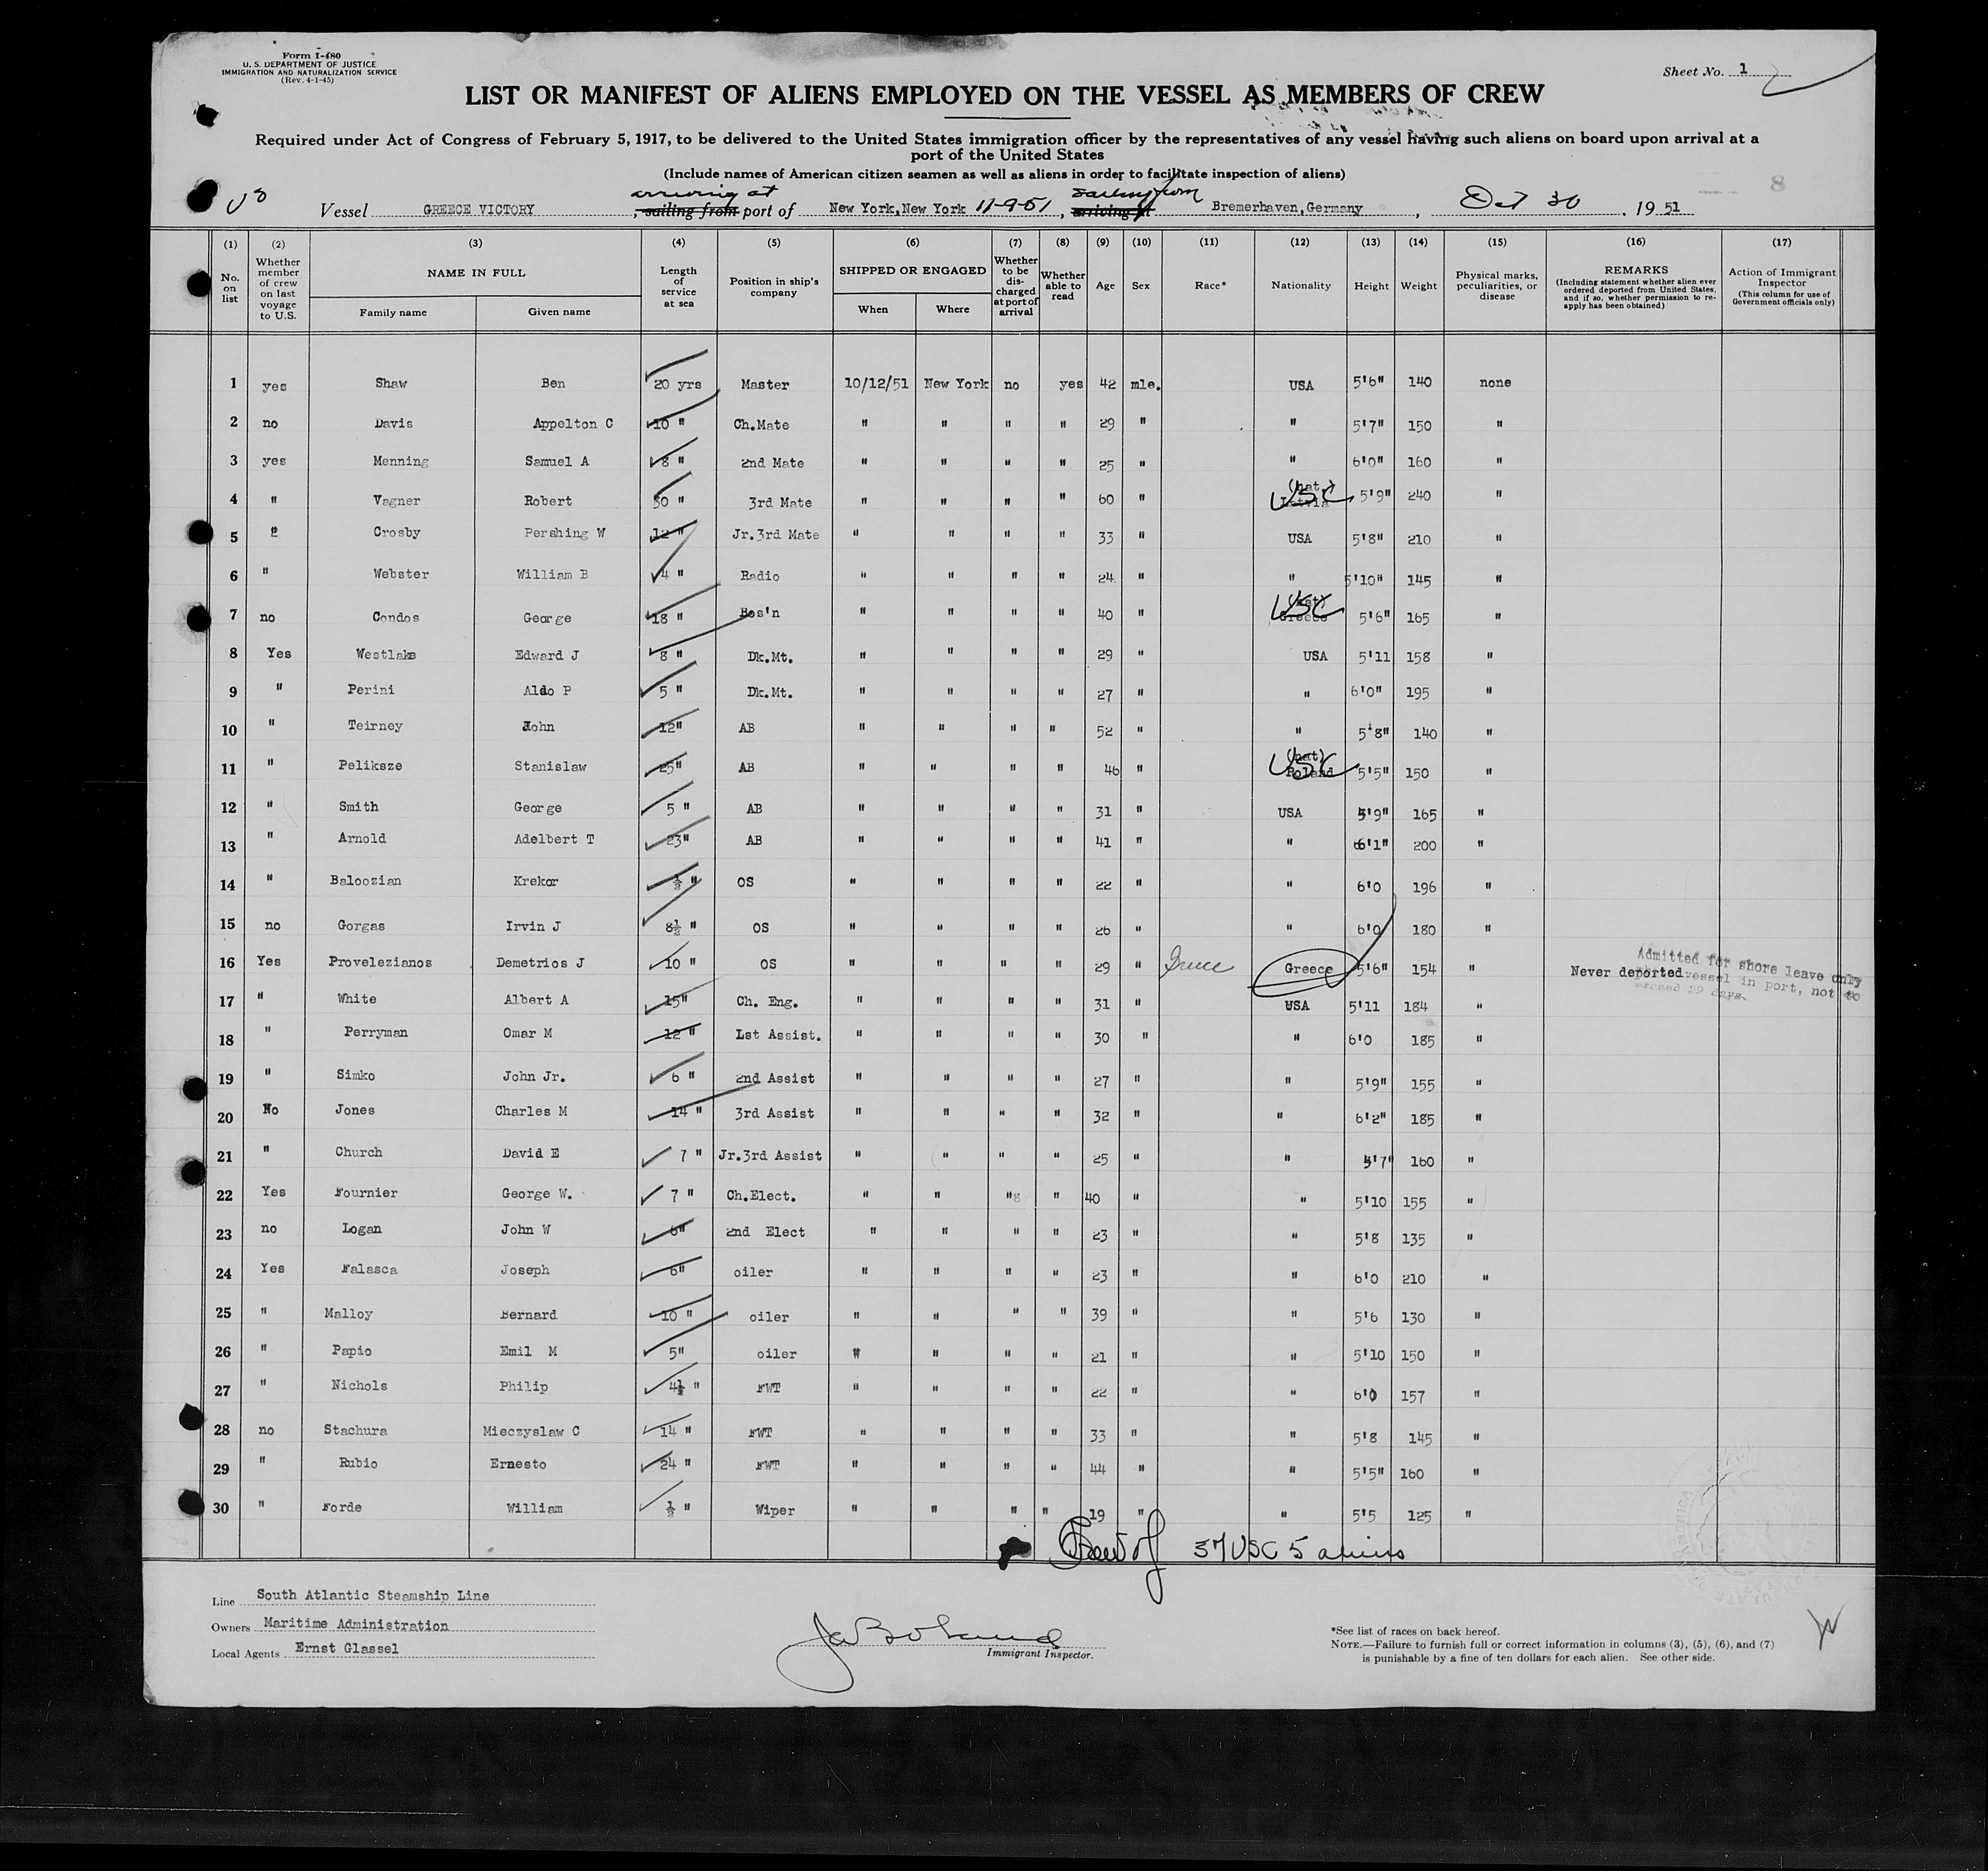 Form I-480
U. S. DEPARTMENT OF JUSTICE
IMMIGRATION AND NATURALIZATION SERVICE
(Rev. 4-1-45)
Sheet No. 1
LIST OR MANIFEST OF ALIENS EMPLOYED ON THE VESSEL AS MEMBERS OF CREW
Required under Act of Congress of February 5, 1917, to be delivered to the United States immigration officer by the representatives of any vessel having such aliens on board upon arrival at a
port of the United States
(Include names of American citizen seamen as well as aliens in order to facilitate inspection of aliens)
8
arriving at sailing from
Vessel GREECE VICTORY, sailing from port of New York, New York 11-9-51, arriving at Bremerhaven, Germany, Oct 30, 19 51
(1) (2) (3) (4) (5) (6) (7) (8) (9) (10) (11) (12) (13) (14) (15) (16) (17)
No. on list Whether member of crew on last voyage to U.S. NAME IN FULL Family name Given name Length of service at sea Position in ship's company SHIPPED OR ENGAGED When Where Whether to be discharged at port of arrival Whether able to read Age Sex Race* Nationality Height Weight Physical marks, peculiarities, or disease REMARKS (Including statement whether alien ever ordered deported from United States, and if so, whether permission to reapply has been obtained) Action of Immigrant Inspector (This column for use of Government officials only)
1 yes Shaw Ben 20 yrs Master 10/12/51 New York no yes 42 mle. USA 5'6" 140 none
2 no Davis Appelton C 10 " Ch.Mate " " " " 29 " " 5'7" 150 "
3 yes Menning Samuel A 8 " 2nd Mate " " " " 25 " " 6'0" 160 "
4 " Vagner Robert 30 " 3rd Mate " " " " 60 " (nat.) Latvia USC 5'9" 240 "
5 " Crosby Pershing W 12 " Jr.3rd Mate " " " " 33 " USA 5'8" 210 "
6 " Webster William B 4 " Radio " " " " 24 " " 5'10" 145 "
7 no Condos George 18 " Bos'n " " " " 40 " (nat) Greece USC 5'6" 165 "
8 Yes Westlake Edward J 8 " Dk.Mt. " " " " 29 " USA 5'11 158 "
9 " Perini Aldo P 5 " Dk.Mt. " " " " 27 " " 6'0" 195 "
10 " Teirney John 12" AB " " " " 52 " " 5'8" 140 "
11 " Peliksze Stanislaw 25" AB " " " " 46 " (nat) Poland USC 5'5" 150 "
12 " Smith George 5 " AB " " " " 31 " USA 5'9" 165 "
13 " Arnold Adelbert T 23" AB " " " " 41 " " 6'1" 200 "
14 " Baloozian Krekor ½ " OS " " " " 22 " " 6'0 196 "
15 no Gorgas Irvin J 8½ " OS " " " " 26 " " 6'0 180 "
16 Yes Provelezianos Demetrios J 10 " OS " " " " 29 " Greece 5'6" 154 " Never deported Admitted for shore leave only vessel in port, not to exceed 29 days.
17 " White Albert A 15" Ch. Eng. " " " " 31 " USA 5'11 184 "
18 " Perryman Omar M 12 " Lst Assist. " " " " 30 " " 6'0 185 "
19 " Simko John Jr. 6 " 2nd Assist " " " " 27 " " 5'9" 155 "
20 No Jones Charles M 14 " 3rd Assist " " " " 32 " " 6'2" 185 "
21 " Church David E 7 " Jr.3rd Assist " " " " 25 " " 5'7" 160 "
22 Yes Fournier George W. 7 " Ch.Elect. " " "8 " 40 " " 5'10 155 "
23 no Logan John W 6" 2nd Elect " " " " 23 " " 5'8 135 "
24 Yes Falasca Joseph 6" oiler " " " " 23 " " 6'0 210 "
25 " Malloy Bernard 10 " oiler " " " " 39 " " 5'6 130 "
26 " Papio Emil M 5" oiler " " " " 21 " " 5'10 150 "
27 " Nichols Philip 4½ " FWT " " " " 22 " " 6'0 157 "
28 no Stachura Mieczyslaw C 14 " FWT " " " " 33 " " 5'8 145 "
29 " Rubio Ernesto 24 " FWT " " " " 44 " " 5'5" 160 "
30 " Forde William ½ " Wiper " " " " 19 " " 5'5 125 "
Crew of 37 USC 5 aliens
Line South Atlantic Steamship Line
Owners Maritime Administration
Local Agents Ernst Glassel
Immigrant Inspector.
*See list of races on back hereof.
NOTE.—Failure to furnish full or correct information in columns (3), (5), (6), and (7)
is punishable by a fine of ten dollars for each alien. See other side.